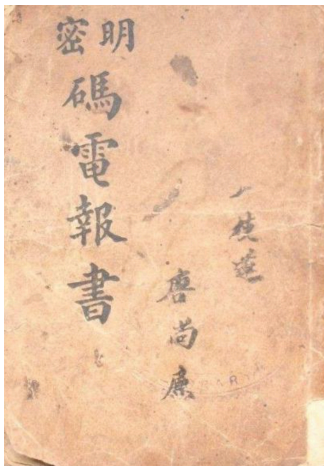 明密
碼電報書
唐尚廉